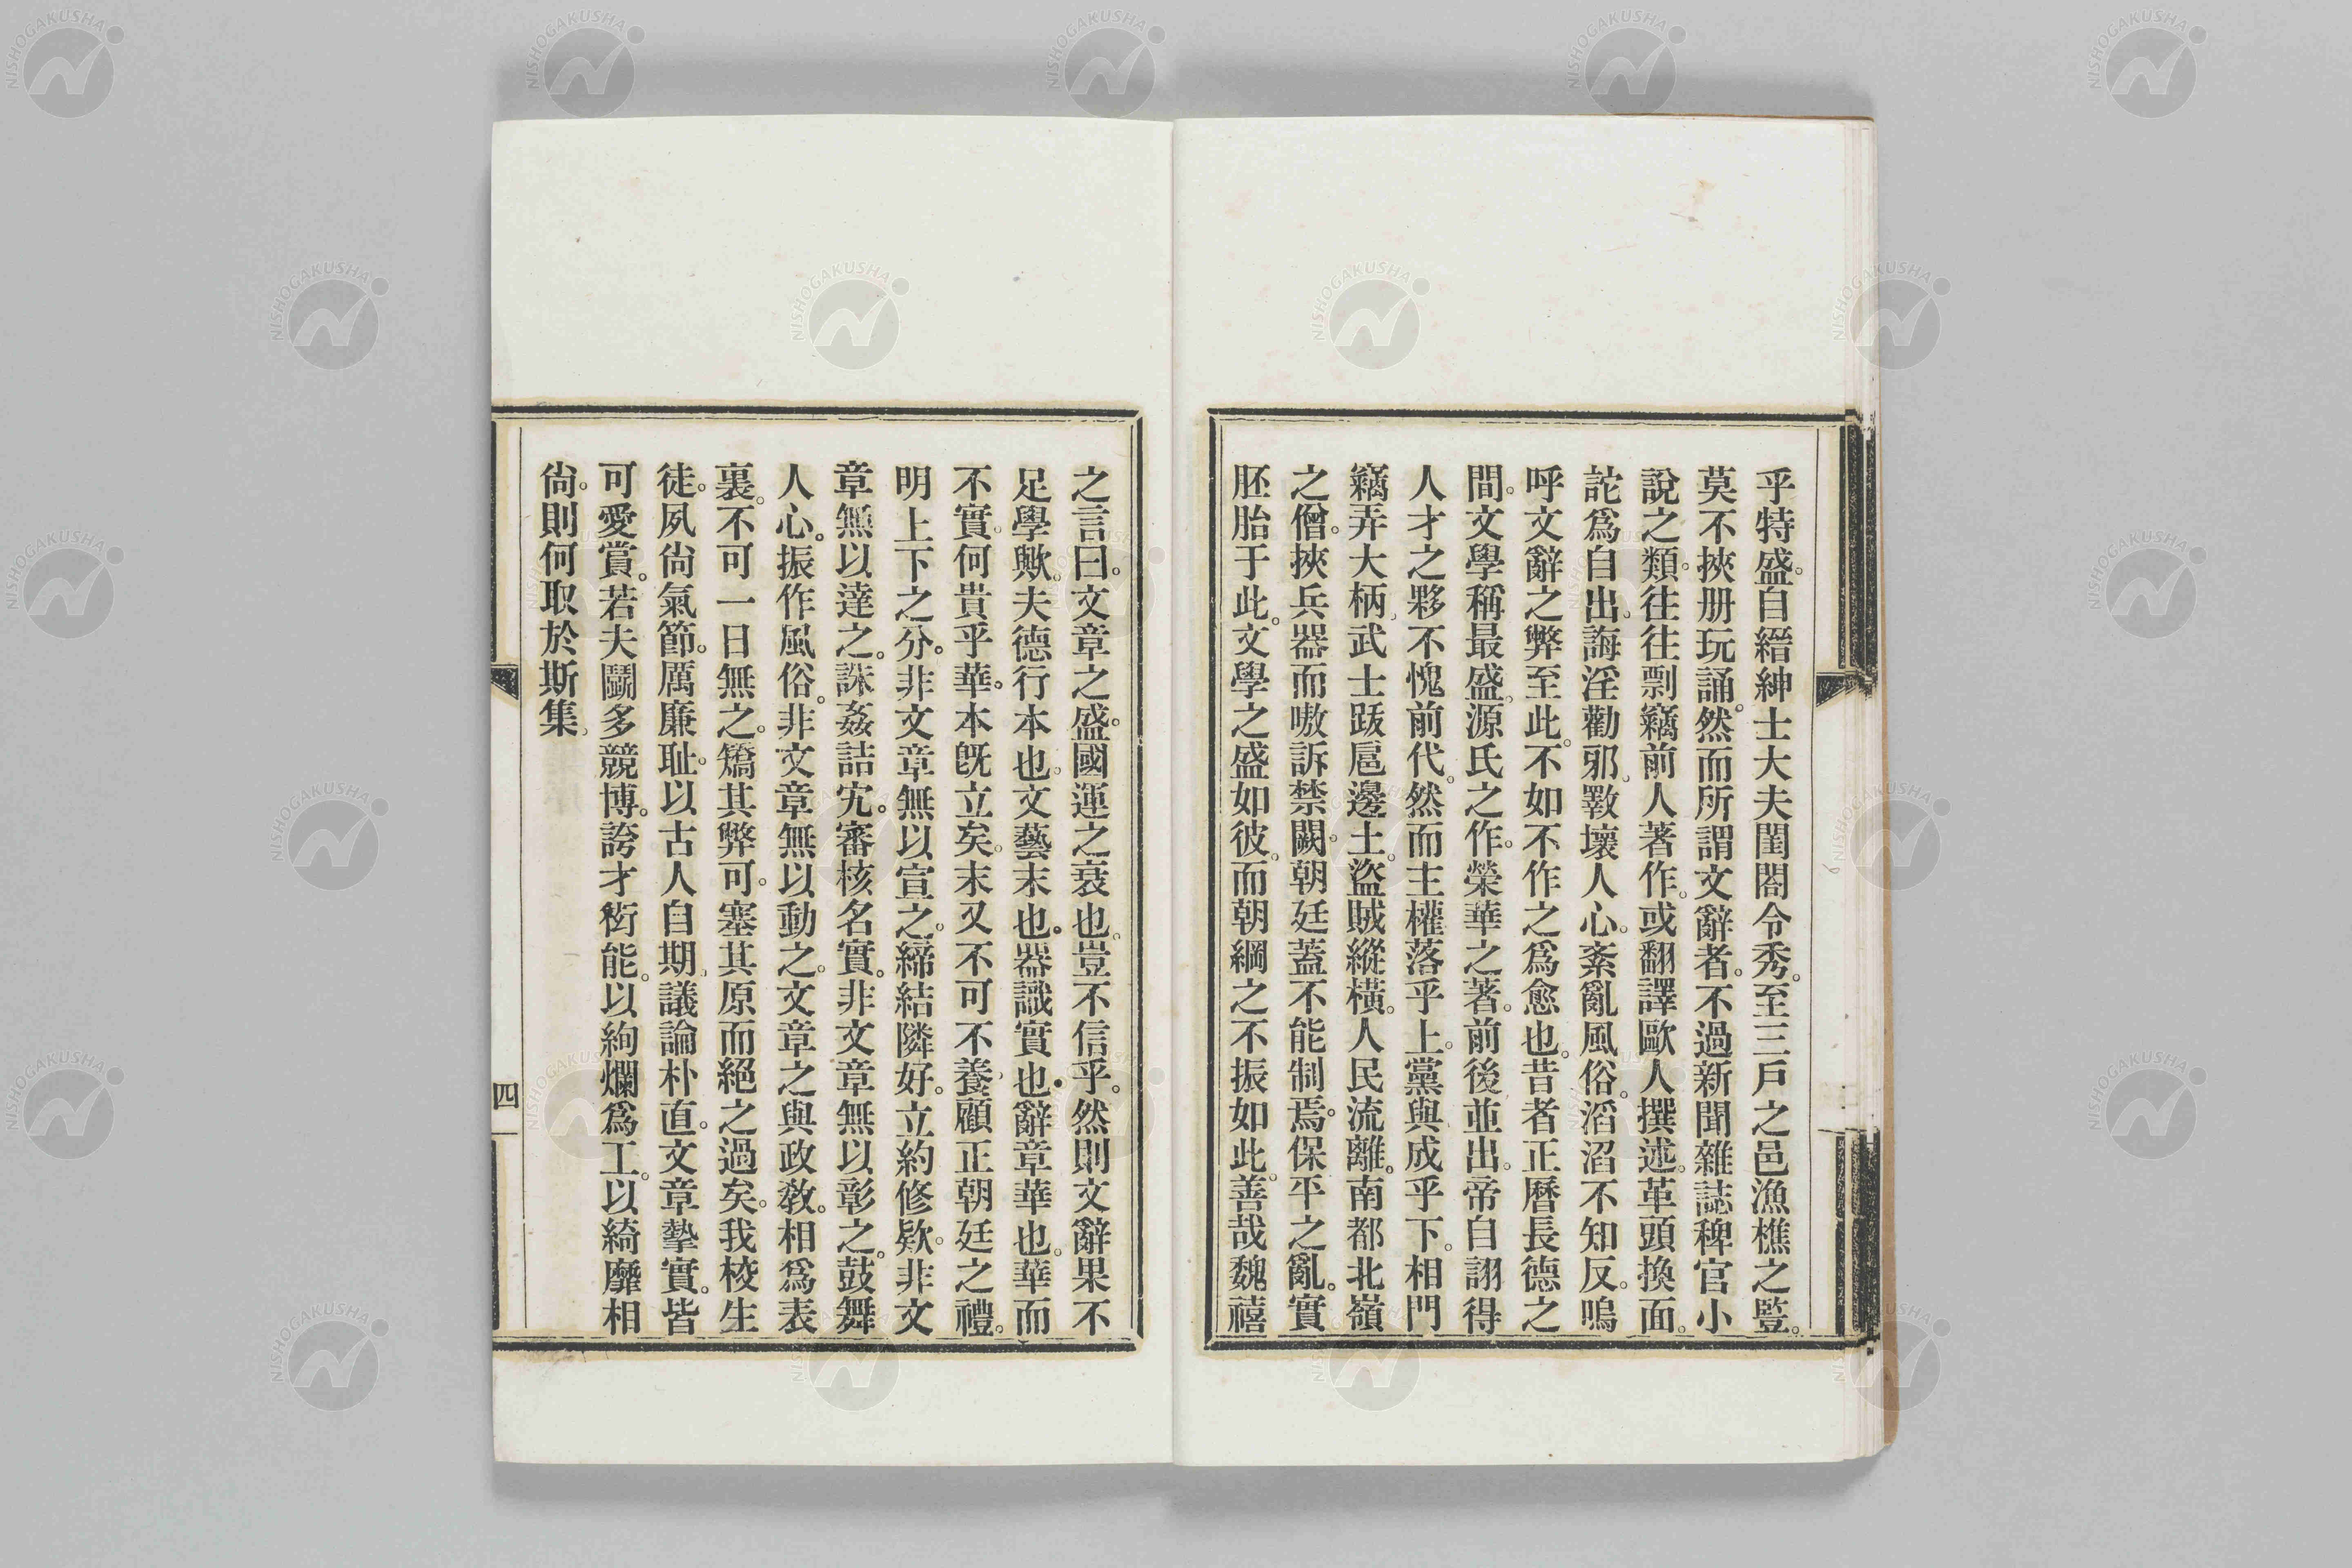 乎特盛。自縉紳士大夫閨閤令秀。至三戶之邑漁樵之豎。
莫不挾册玩誦。然而所謂文辭者。不過新聞雜誌稗官小
說之類。往往剽竊前人著作。或翻譯歐人撰述。革頭換面。
詑爲自出。誨淫勸邪。斁壞人心。紊亂風俗。滔滔不知反。嗚
呼文辭之弊至此。不如不作之爲愈也。昔者正曆長德之
間。文學稱最盛。源氏之作。榮華之著。前後並出。帝自詡得
人才之夥不愧前代。然而主權落乎上。黨與成乎下。相門
竊弄大柄。武士跋扈邊土。盜賊縱橫。人民流離。南都北嶺
之僧。挾兵器而嗷訴禁闕。朝廷蓋不能制焉。保平之亂。實
胚胎于此。文學之盛如彼。而朝綱之不振如此。善哉魏禧
之言曰。文章之盛。國運之衰也。豈不信乎。然則文辭果不
足學歟。夫德行本也。文藝末也。器識實也。辭章華也。華而
不實。何貴乎華。本既立矣。末又不可不養。顧正朝廷之禮。
明上下之分。非文章無以宣之。締結隣好。立約修欵。非文
章無以達之。誅姦詰宄。審核名實。非文章無以彰之。鼓舞
人心。振作風俗。非文章無以動之。文章之與政敎。相爲表
裏。不可一日無之。矯其弊可。塞其原而絕之過矣。我校生
徒。夙尙氣節。厲廉耻。以古人自期。議論朴直。文章摯實。皆
可愛賞。若夫鬭多競博。誇才衒能。以絢爛爲工。以綺靡相
尙。則何取於斯集。
四
NISHOGAKUSHA